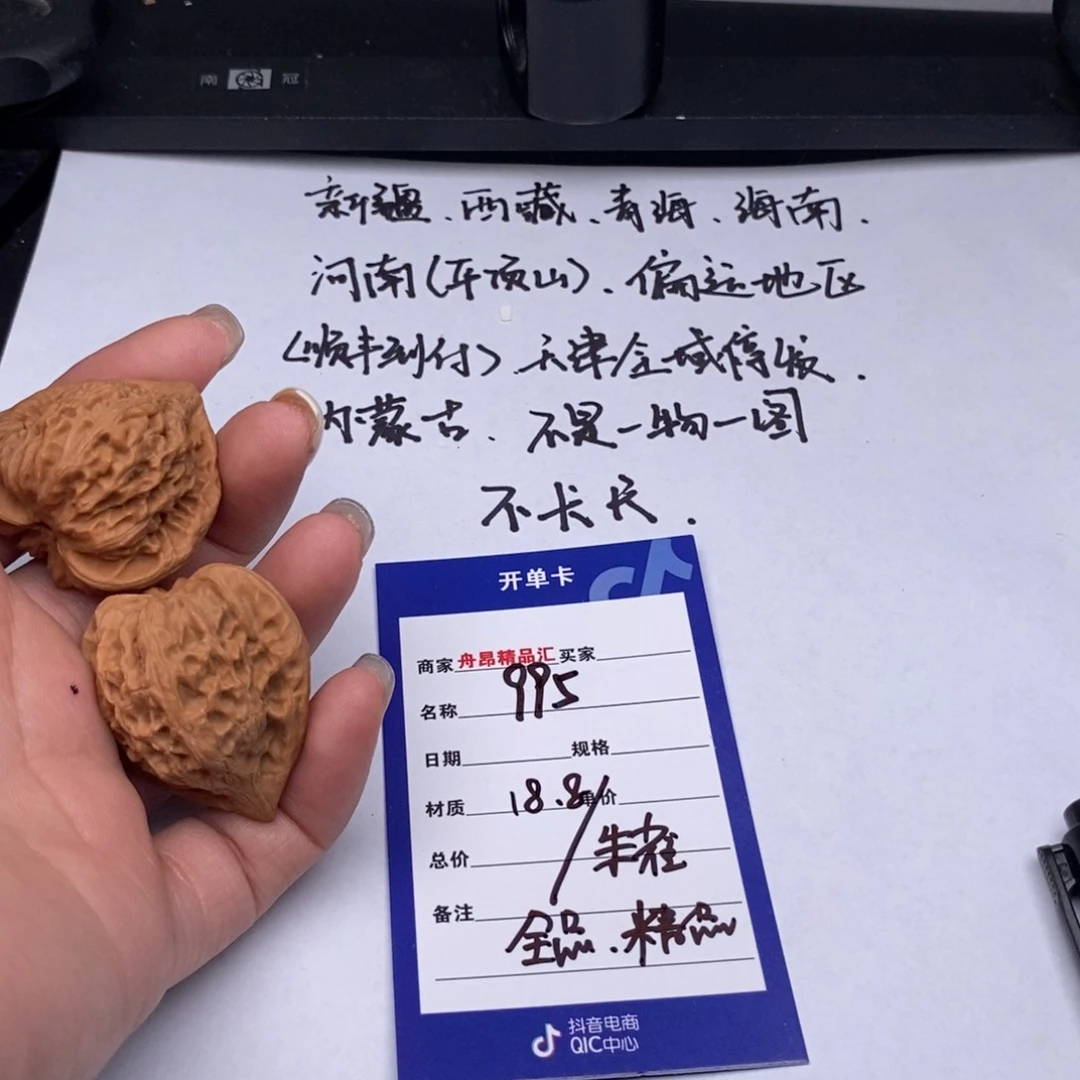 南 冠
新疆、西藏、青海、海南.
河南(平顶山)、偏远地区
(顺丰到付)天津全域停发.
内蒙古、不是一物一图
不卡尺.
开单卡
商家 舟昂精品汇 买家
995
名称
日期 规格
材质 18.8/ 单价
总价 朱雀
备注
全品.精品
抖音电商
QIC中心